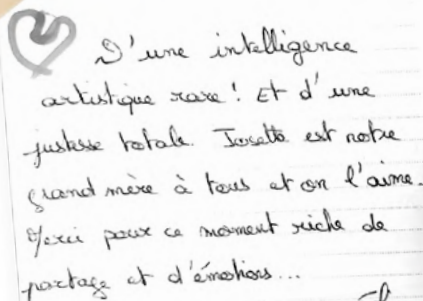 D'une intelligence
artistique rare ! Et d'une
justesse totale. Josette est notre
grand mère à tous et on l'aime.
Merci pour ce moment riche de
partage et d'émotions...